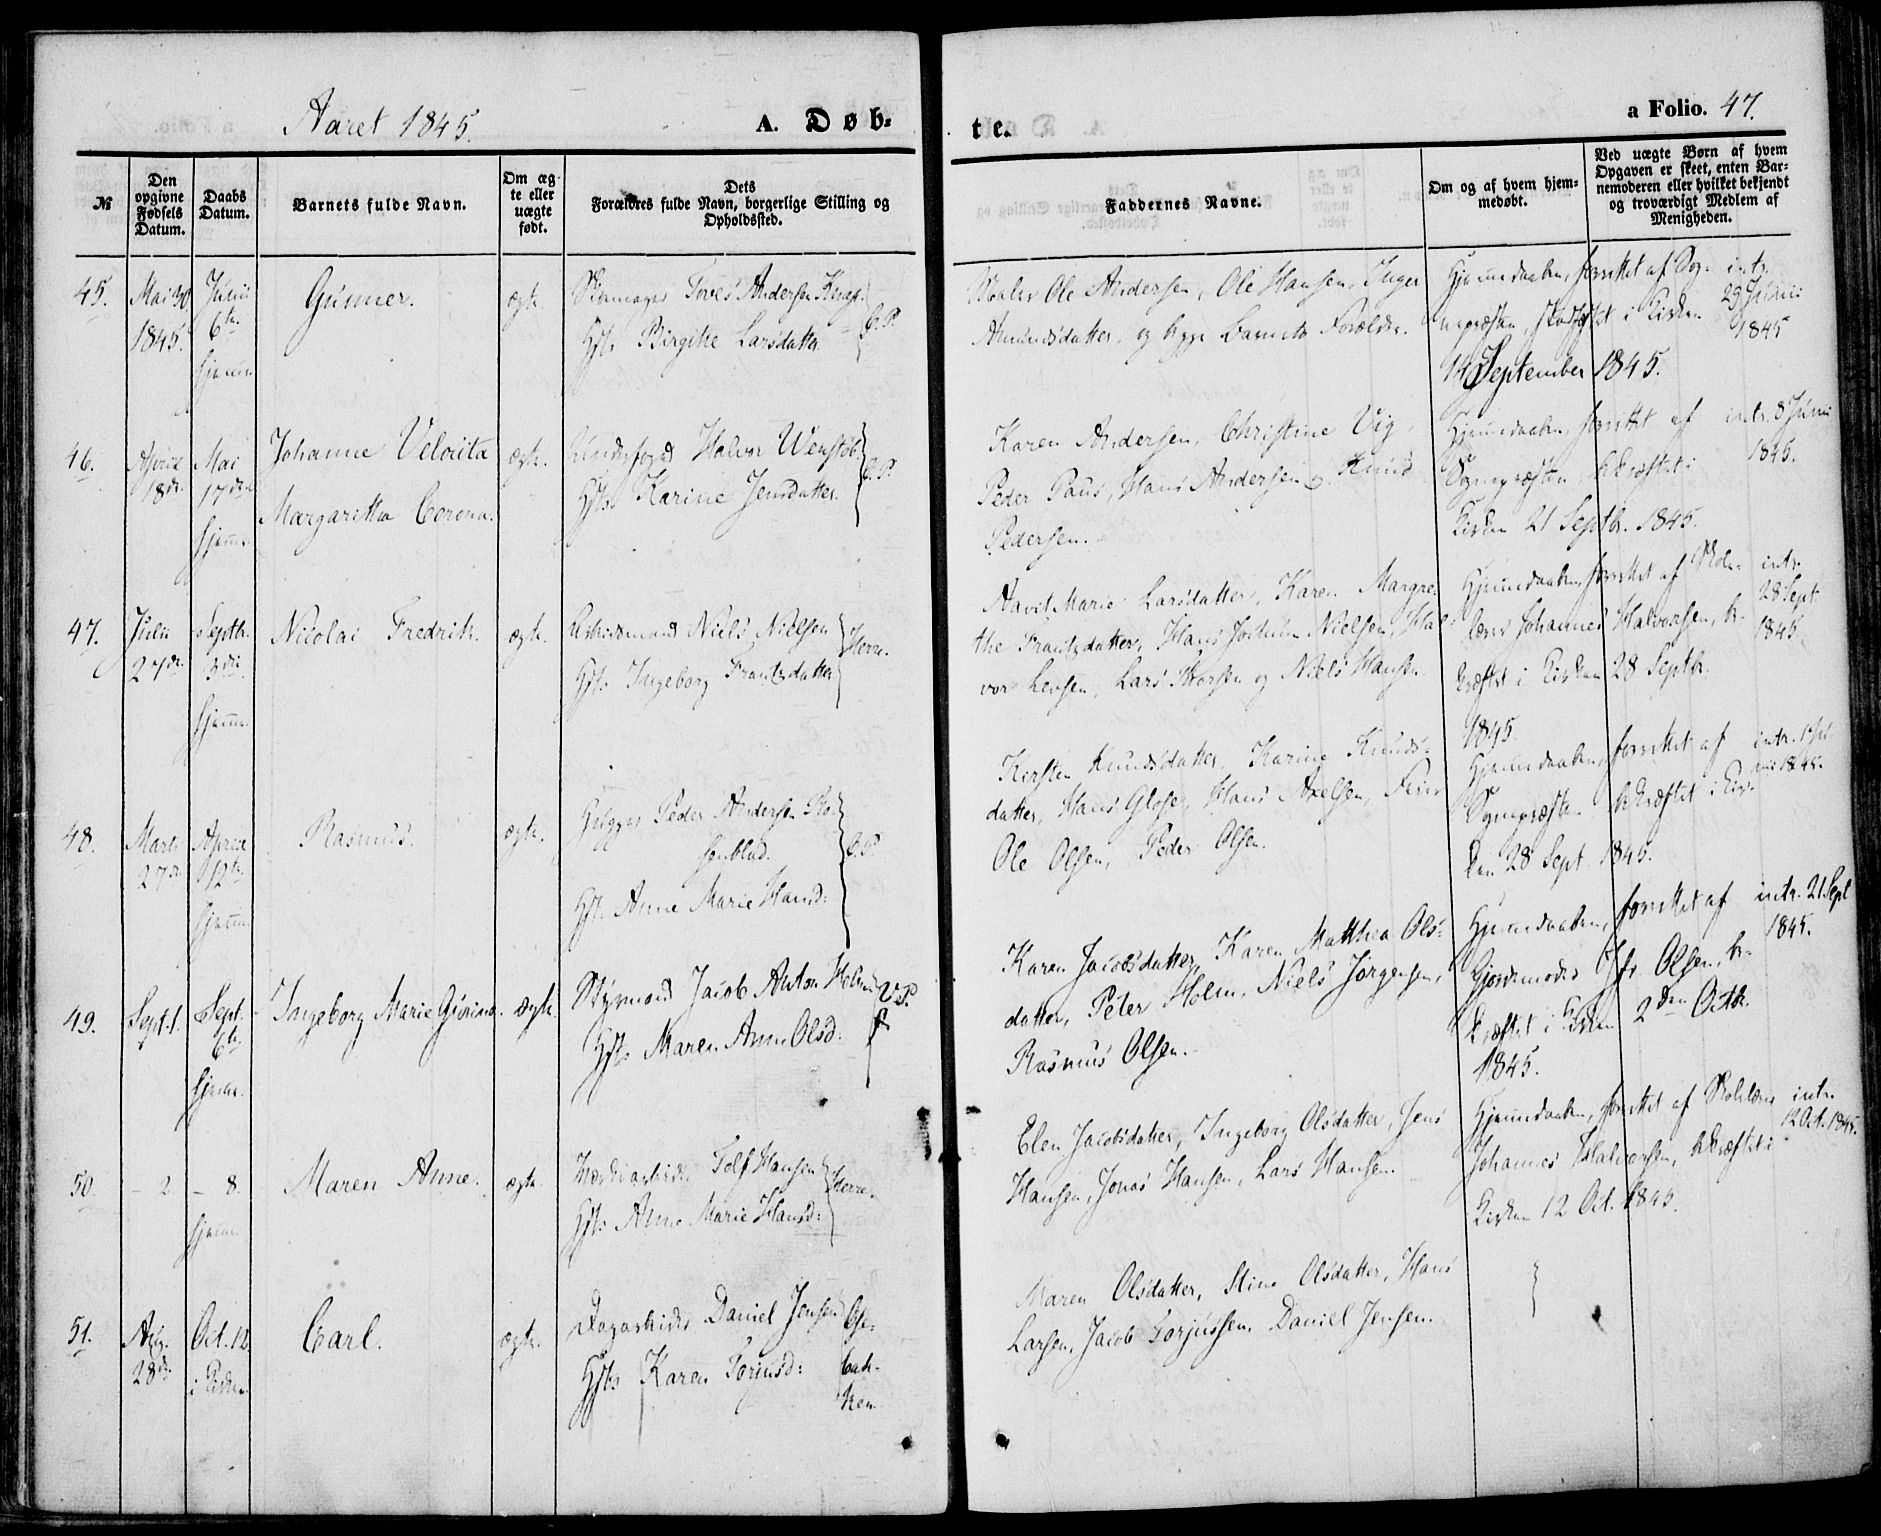 Aaret 1845.
A. Døb=
te.
a Folio. 47.
№
Den opgivne Fødsels Datum.
Daabs Datum.
Barnets fulde Navn.
Om ægte eller uægte født.
Dets Forældres fulde Navn, borgerlige Stilling og Opholdssted.
Faddernes Navne.
Om og af hvem hjemmedøbt.
Ved uægte Børn af hvem Opgaven er skeet, enten Barnemoderen eller hvilket bekjendt og troværdigt Medlem af Menigheden.
45. Mai 30 1845. Junii 6te hjemme
Gunner.
ægte.
Andersen
Hst. Birgithe Larsdatter
Ole Andersen, Ole Hansen, Inger
Amundsdatter, og begge Barnets Forældre.
Hjemmedaaben, forrettet af Sog-
nepræsten, stadfæstet i Kirken
14 September 1845.
intr.
29 Junii
1845
46. April 18de. Mai 17de hjemme
Johanne Velorita
Margaritha Cerena.
ægte.
Halvor Wenstøb.
Hst. Karine Jensdatter.
Karen Andersen, Christine Vig,
Peder Paus, Hans Andersen og Knud
Pedersen.
Hjemmedaaben, forrettet af
Sognepræsten, bekræftet i
Kirken 21 Septbr. 1845.
intr. 8 Junii
1845.
47. Julii 27de. Septbr. 3die. hjemme
Nicolai Fredrik.
ægte.
Arbeidsmand Niels Nielsen
Hst. Ingeborg Frantzdatter
Herre.
Marie Larsdatter, Karen Margre-
the Frantzdatter, Hans Jochum Nielsen, Hal-
vor Levsen, Lars Thorsen og Niels Hansen.
Hjemmedaaben, forrettet af Skole-
lærer Johannes Halvorsen, be-
kræftet i Kirken 28 Septbr.
1845.
intr.
28 Sept
1845.
48. Marts 27de April 12te hjemme
Rasmus.
ægte.
Peder Andersen Ro-
senblad.
Hst. Anne Marie Hansd:
Kirsten Knudsdatter, Karine Knuds-
datter, Hans Glose, Hans Axelsen,
Ole Olsen, Peder Olsen.
Hjemmedaaben, forrettet af
Sognepræsten, bekræftet i Kir-
ken 28 Sept. 1845.
intr. 1 Ju-
nii 1845.
49. Sept. 1. Sept. 6te hjemme.
Ingeborg Marie Gjorine.
ægte.
Styrmand Jacob Anton Holm
Hst. Maren Anne Olsd:
V.P.
Karen Jacobsdatter, Karen Mathea Ols-
datter, Peter Holm, Niels Jørgensen,
Rasmus Olsen.
Hjemmedaaben, forrettet af
Gjordemoder Jfr. Olsen, be-
kræftet i Kirken 2den Octbr.
1845.
intr. 21 Sept
1845.
50. - 2 - 8. hjemme
Maren Anne.
ægte.
Tolf Hansen
Hst. Anne Marie Hansd:
Herre.
Elen Jacobsdatter, Ingeborg Olsdatter, Jens
Hansen, Jonas Hansen, Lars Hansen.
Hjemmedaaben, forrettet af Skolelærer
Johannes Halvorsen, bekræftet i
Kirken 12 Oct. 1845.
intr.
12 Oct. 1845.
51. Aug. 28de. Oct. 12. i Kirken
Carl.
ægte.
Dagarbeider Daniel Jensen
Hst. Karen Torjusd:
Maren Olsdatter, Stine Olsdatter, Hans
Larsen, Jacob Torjussen, Daniel Jensen.